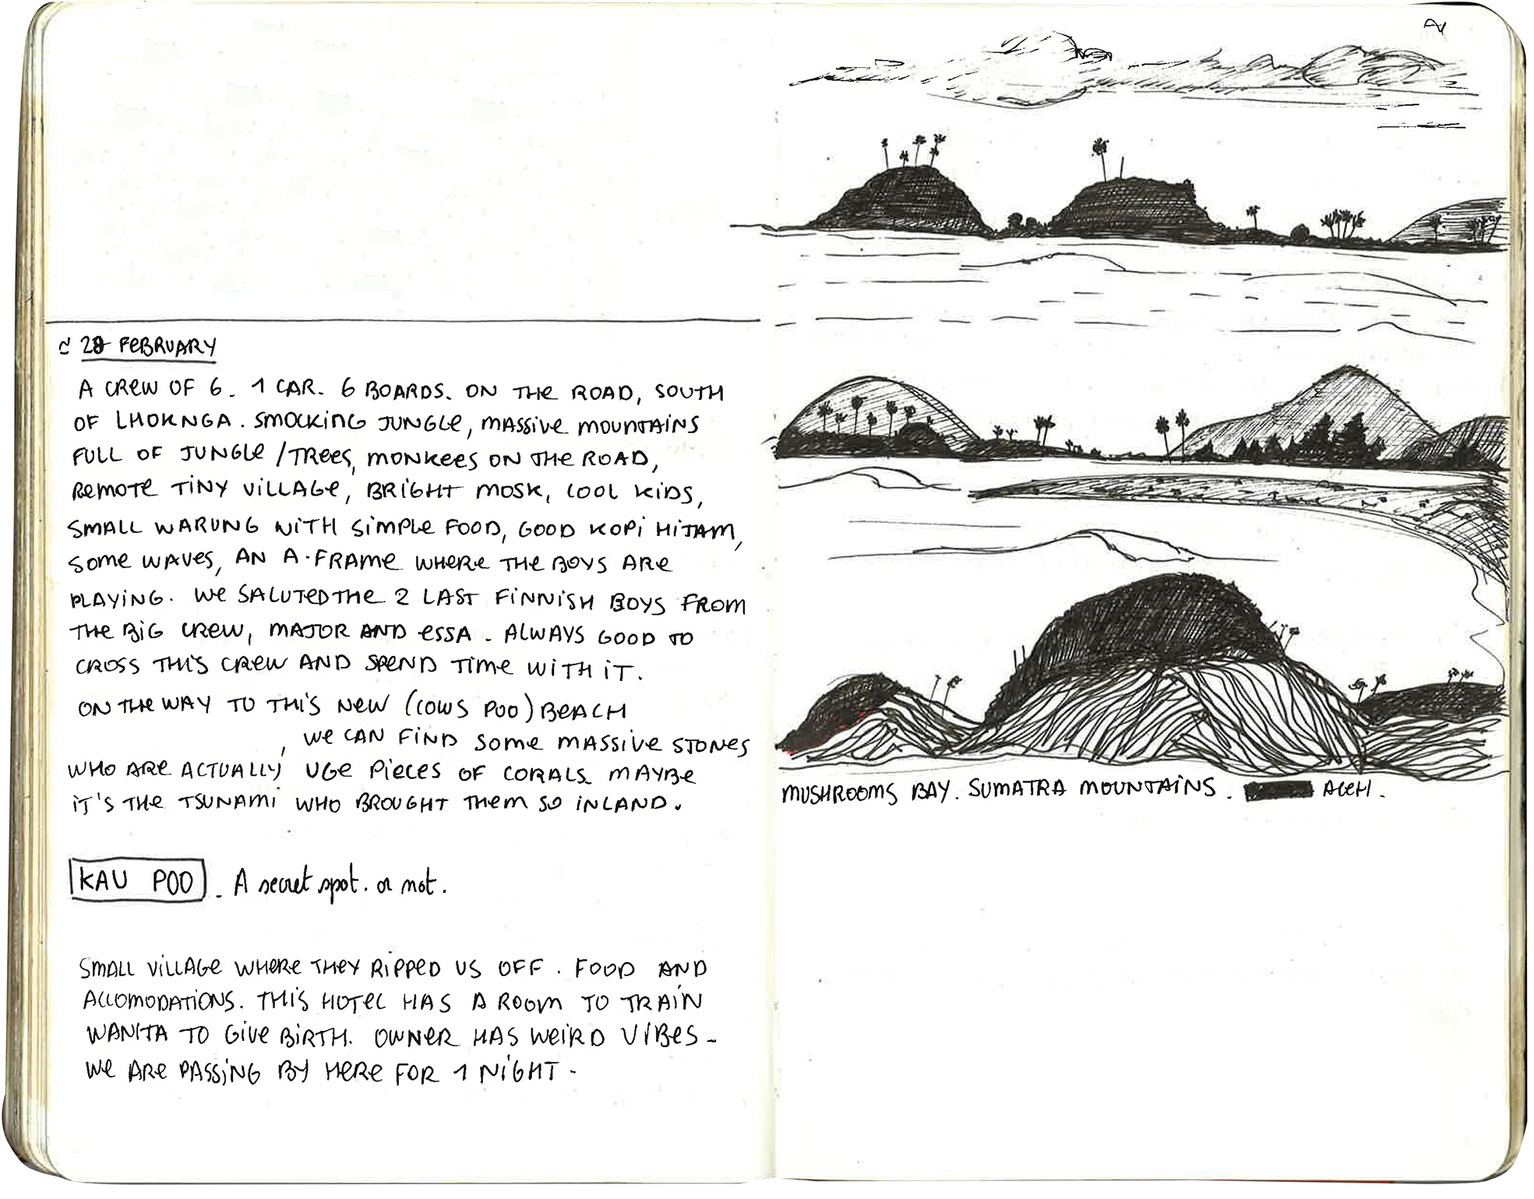 ~ 28 FEBRUARY
A CREW OF 6. 1 CAR. 6 BOARDS. ON THE ROAD, SOUTH
OF LHOKNGA. SMOCKING JUNGLE, MASSIVE MOUNTAINS
FULL OF JUNGLE / TREES, MONKEES ON THE ROAD,
REMOTE TINY VILLAGE, BRIGHT MOSK, COOL KIDS,
SMALL WARUNG WITH SIMPLE FOOD, GOOD KOPI HITAM,
SOME WAVES, AN A-FRAME WHERE THE BOYS ARE
PLAYING. WE SALUTED THE 2 LAST FINNISH BOYS FROM
THE BIG CREW, MAJOR AND ESSA. ALWAYS GOOD TO
CROSS THIS CREW AND SPEND TIME WITH IT.
ON THE WAY TO THIS NEW (COWS POO) BEACH
, WE CAN FIND SOME MASSIVE STONES
WHO ARE ACTUALLY UGE PIECES OF CORALS MAYBE
IT'S THE TSUNAMI WHO BROUGHT THEM SO INLAND.
KAU POO . A secret spot. or not.
SMALL VILLAGE WHERE THEY RIPPED US OFF. FOOD AND
ACCOMODATIONS. THIS HOTEL HAS A ROOM TO TRAIN
WANITA TO GIVE BIRTH. OWNER HAS WEIRD VIBES -
WE ARE PASSING BY HERE FOR 1 NIGHT -
MUSHROOMS BAY. SUMATRA MOUNTAINS. ACEH.